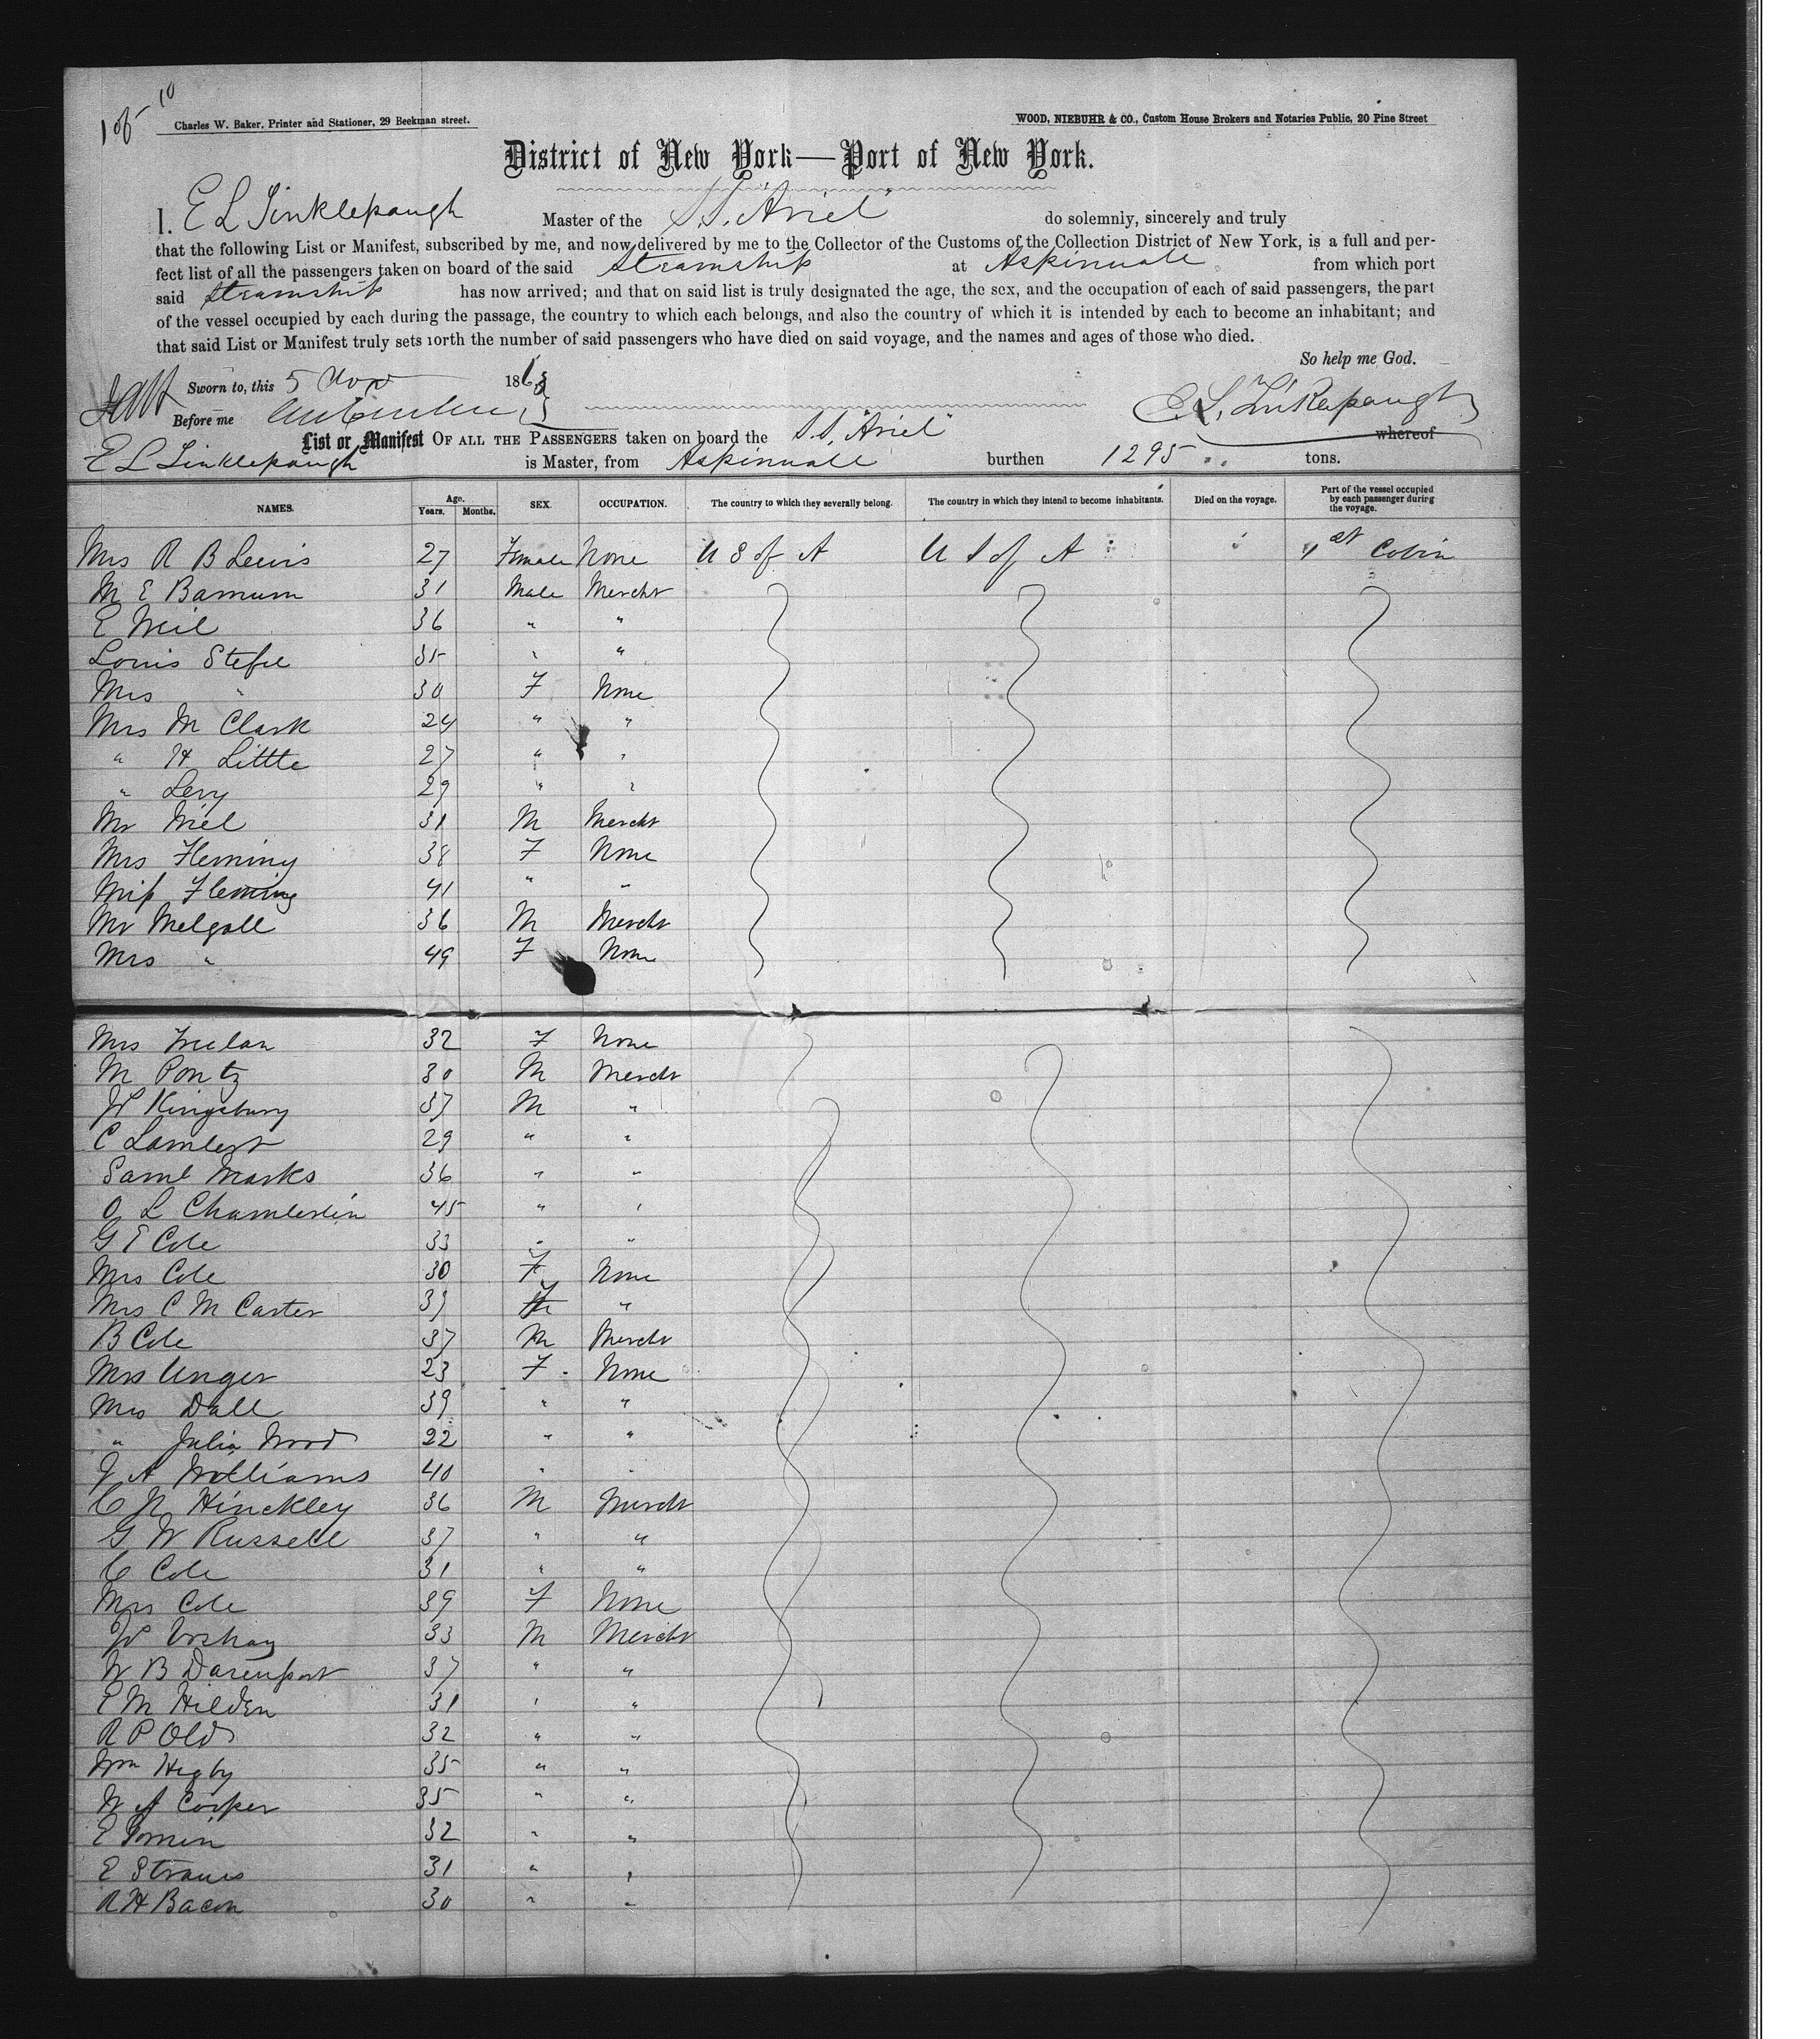 105 10
Charles W. Baker, Printer and Stationer, 29 Beekman street.
WOOD, NIEBUHR & CO., Custom House Brokers and Notaries Public, 20 Pine Street
District of New York—Port of New York.
I. E L Tinklepaugh Master of the S.S. "Ariel" do solemnly, sincerely and truly
that the following List or Manifest, subscribed by me, and now delivered by me to the Collector of the Customs of the Collection District of New York, is a full and per-
fect list of all the passengers taken on board of the said Steamship at Aspinwall from which port
said Steamship has now arrived; and that on said list is truly designated the age, the sex, and the occupation of each of said passengers, the part
of the vessel occupied by each during the passage, the country to which each belongs, and also the country of which it is intended by each to become an inhabitant; and
that said List or Manifest truly sets forth the number of said passengers who have died on said voyage, and the names and ages of those who died.
So help me God.
Sworn to, this 5 Nov 1863
Before me
E. L. Tinklepaugh
List or Manifest OF ALL THE PASSENGERS taken on board the S.S. "Ariel" whereof
E L Tinklepaugh is Master, from Aspinwall burthen 1295 tons.
NAMES. Age. Years. Months. SEX. OCCUPATION. The country to which they severally belong. The country in which they intend to become inhabitants. Died on the voyage. Part of the vessel occupied by each passenger during the voyage.
Mrs R B Lewis 27 Female None U S of A U S of A 1st Cabin
M E Barnum 31 Male Mercht
E Neil 36 " "
Louis 35 " "
Mrs " 30 F None
Mrs M Clark 24 " "
" H Little 27 " "
" Levy 29 " "
Mr Niel 31 M Mercht
Mrs Fleming 38 F None
Miss Fleming 41 " "
Mr Melgall 36 M Mercht
Mrs " 49 F None
Mrs 32 F None
M Pontz 30 M Mercht
W Kingsbury 37 M "
C Lambert 29 " "
Saml Marks 36 " "
O L Chamberlin 45 " "
G E Cole 33 " "
Mrs Cole 30 F None
Mrs C M Carter 39 F "
B Cole 37 M Mercht
Mrs Unger 23 F None
Mrs Dall 39 " "
" Julia Wood 22 " "
J A Williams 40 " "
C N Hinckley 36 M Mercht
G W Russell 37 " "
C Cole 31 " "
Mrs Cole 39 F None
W 33 M Mercht
W B Davenport 37 " "
E M Hilden 31 " "
R P Old 32 " "
Wm Higby 35 " "
W A Cooper 35 " "
E 32 " "
E Straus 31 " "
R H Bacon 30 " "